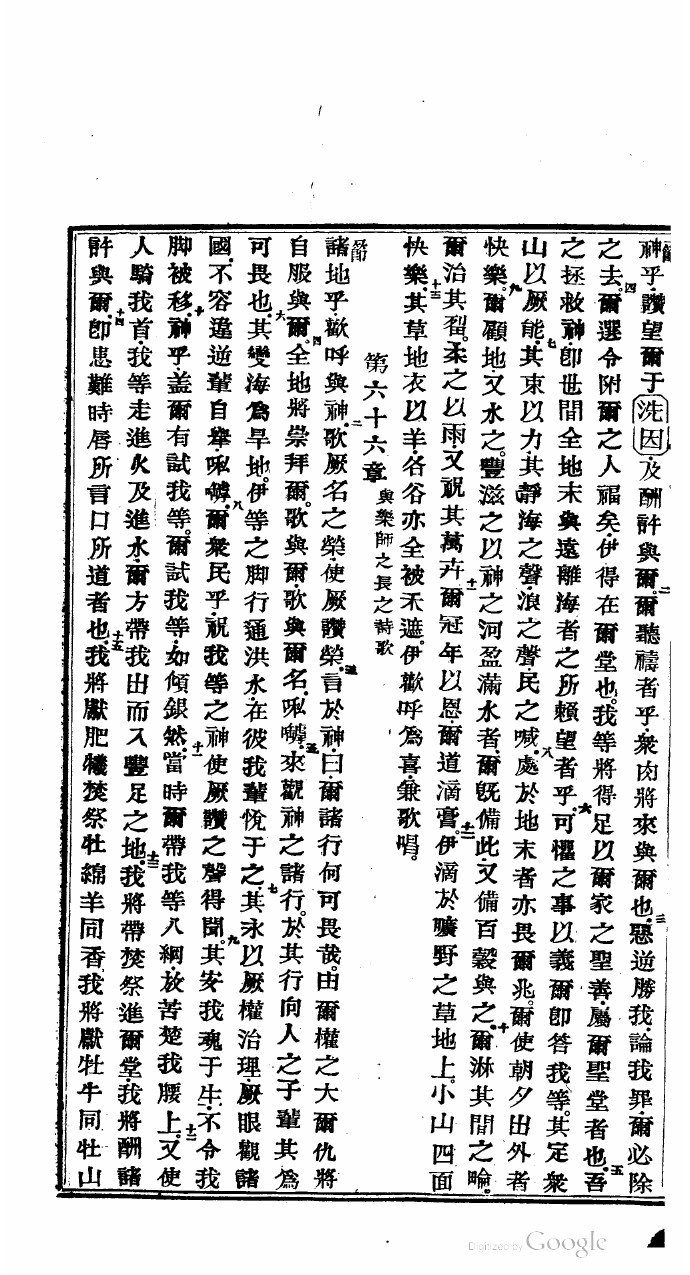 神乎讚望爾于洗因及酬許與爾二爾聽禱者乎衆肉將來與爾也三惡逆勝我論我罪爾必除
之去四爾選令附爾之人福矣伊得在爾堂也我等將得足以爾家之聖善屬爾聖堂者也五吾
之拯救神卽世間全地末與遠離海者之所賴望者乎可懼之事以義爾卽答我等六其定衆
山以厥能其束以力七其靜海之聲浪之聲民之喊八處於地末者亦畏爾兆爾使朝夕出外者
快樂九爾顧地又水之豐滋之以神之河盈滿水者爾旣備此又備百穀與之十爾淋其間之畮
爾治其裂柔之以雨又祝其萬卉十一爾冠年以恩爾道滴膏十二伊滴於曠野之草地上小山四面
快樂十三其草地衣以羊各谷亦全被禾遮伊歡呼爲喜兼歌唱
第六十六章 與樂師之長之詩歌
節諸地乎歡呼與神二歌厥名之榮使厥讚榮三言於神曰爾諸行何可畏哉由爾權之大爾仇將
自服與爾四全地將崇拜爾歌與爾歌與爾名𠵽嘞五來觀神之諸行於其行向人之子輩其爲
可畏也六其變海爲旱地伊等之脚行通洪水在彼我輩悅于之七其永以厥權治理厥眼觀諸
國不容違逆輩自舉𠵽嘞八爾衆民乎祝我等之神使厥讚之聲得聞九其安我魂于生不令我
脚被移十神乎蓋爾有試我等爾試我等如傾銀然十一當時爾帶我等入綱放苦楚我腰上十二又使
人騎我首我等走進火及進水爾方帶我出而入豐足之地十三我將帶焚祭進爾堂我將酬諸
許與爾十四卽患難時唇所言口所道者也十五我將獻肥犧焚祭牡綿羊同香我將獻牡牛同牡山
Digitized by Google